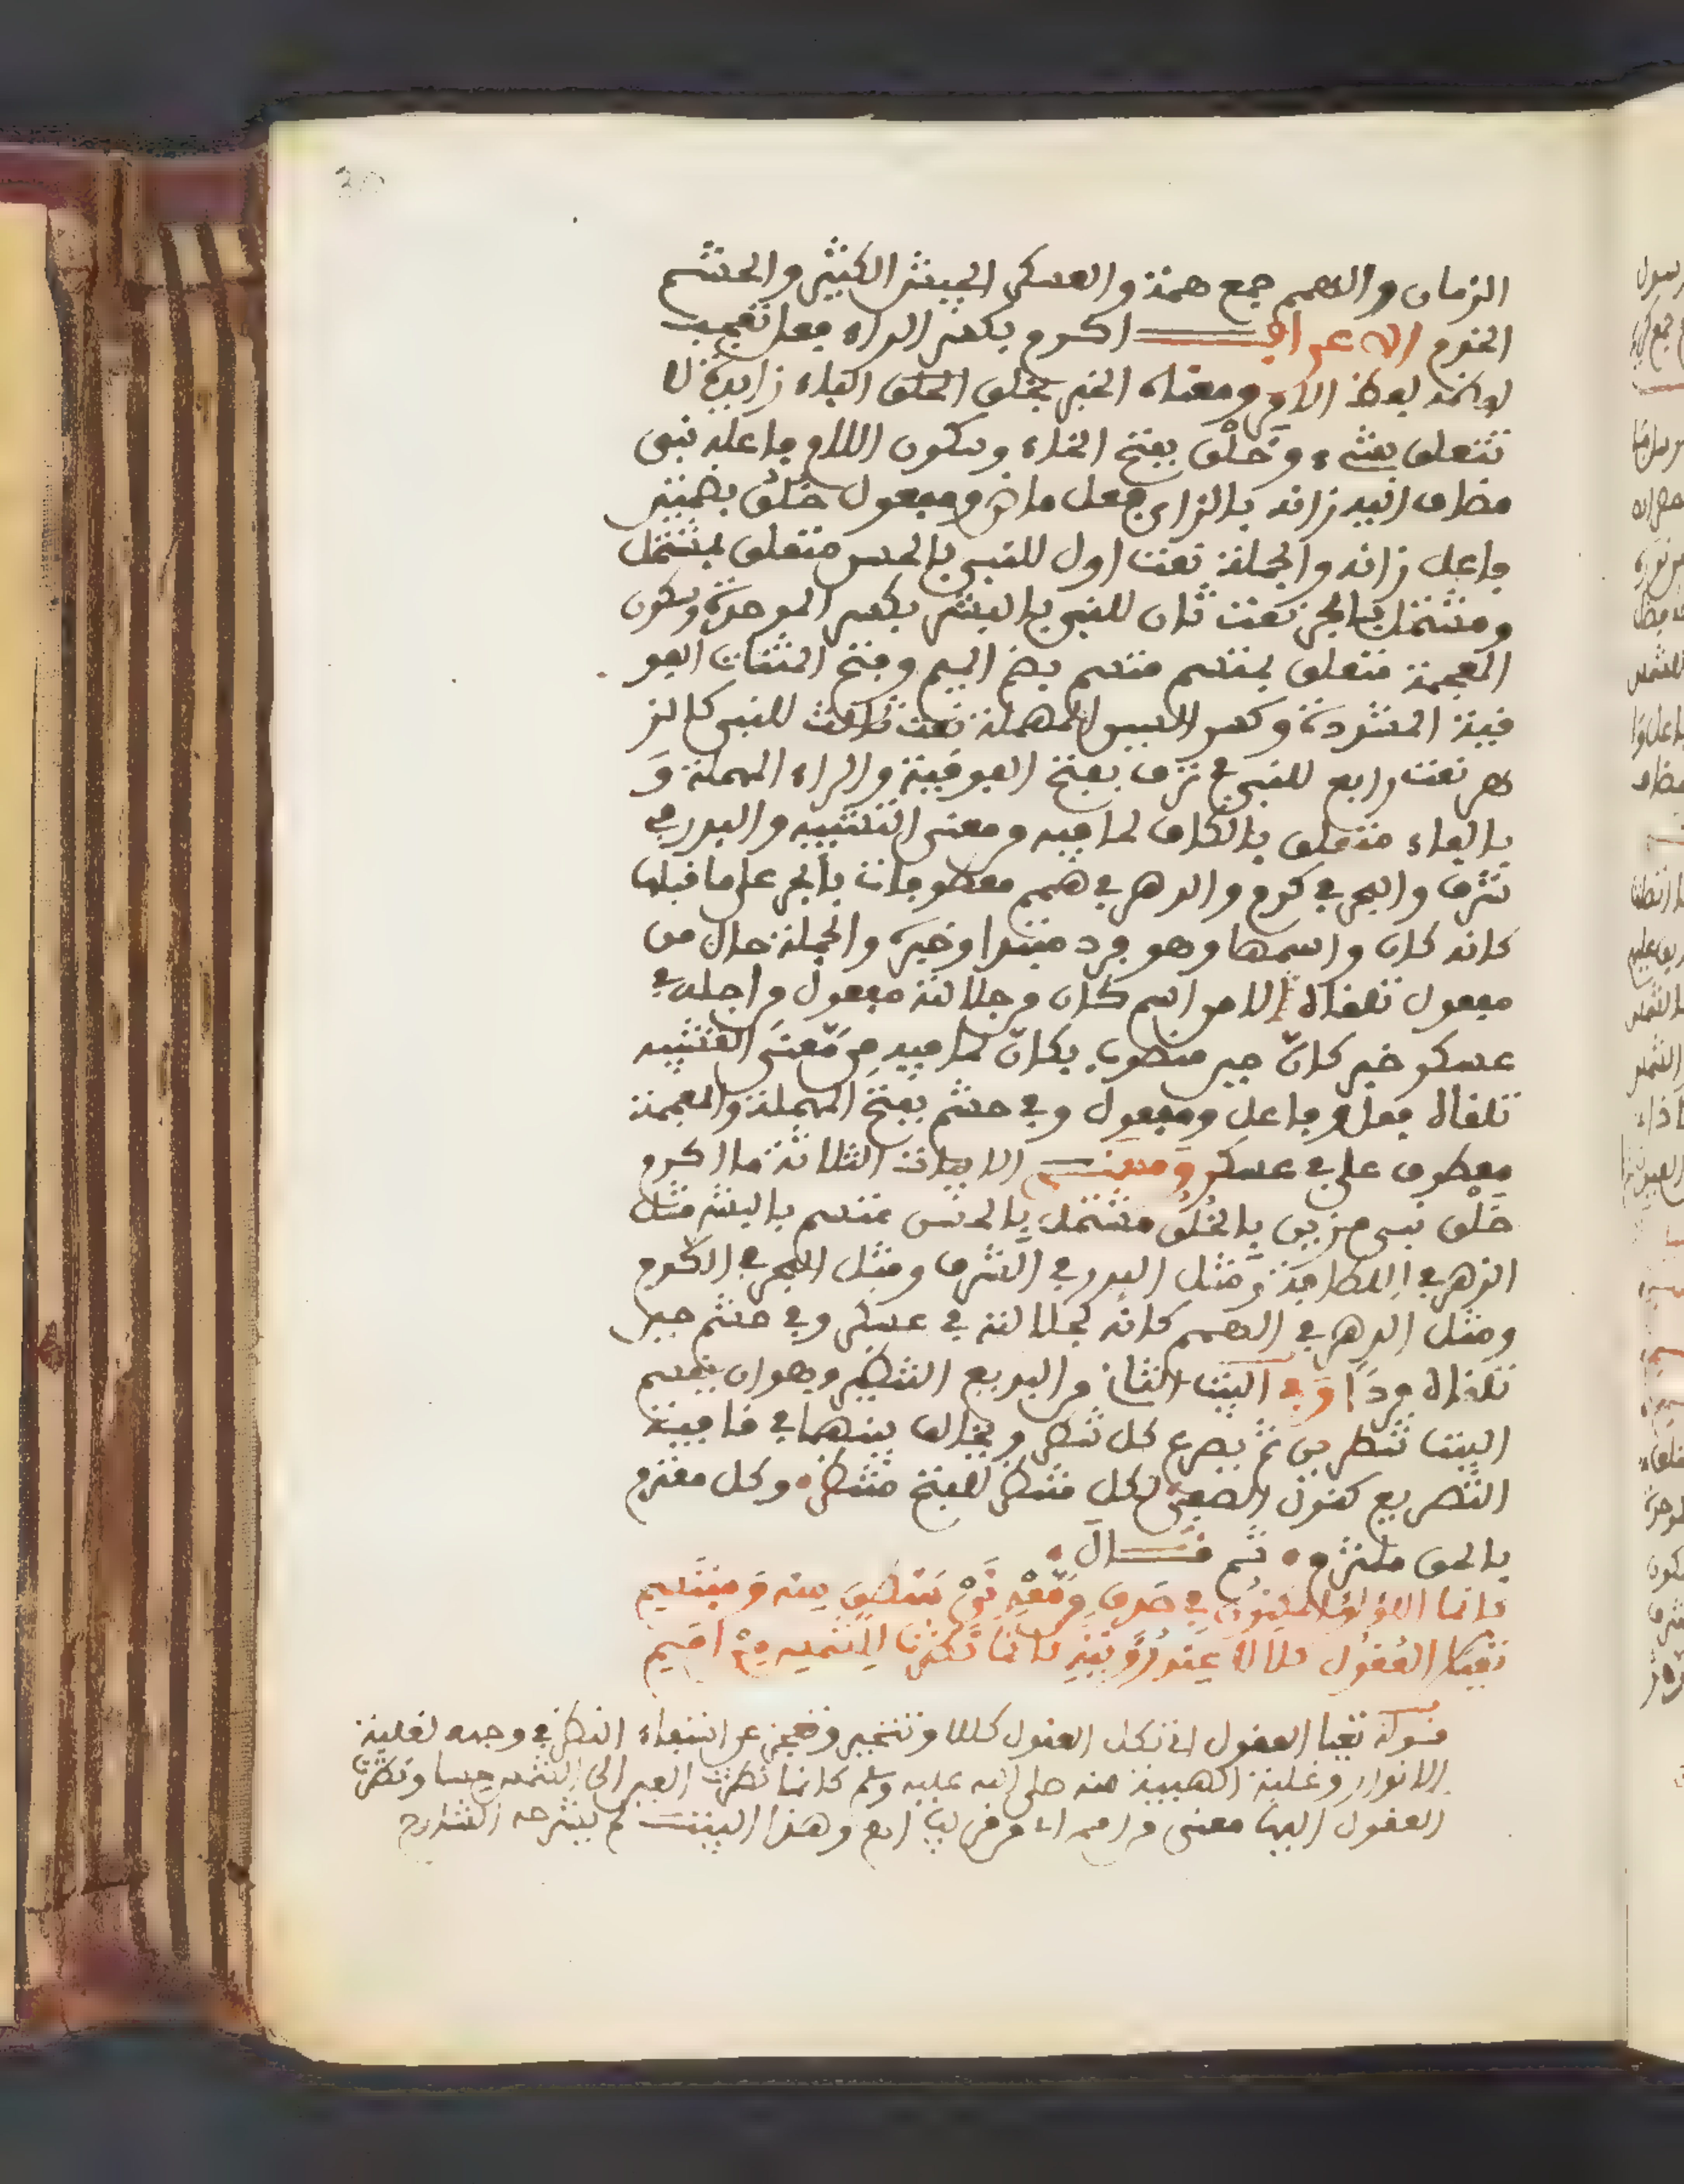 الزمان والهمم جمع همة والعسكر الجيش الكثير والحشم
الخدم الاعراب اكرم بكسر الراء فعل تعجب
لفظه لفظ الامر ومعناه الخبر بخلق الخلق الباء زايدة لا
تتعلق بشيء وخَلْق بفتح الخاء وسكون اللام فاعله نبي
مضاف اليه زانه بالزاي فعل ماض ومفعول خُلُق بضمتين
فاعل زانه والجملة نعت اول للنبي بالحسن متعلق بمشتمل
ومشتمل بالجر نعت ثان للنبي بالبشر بكسر الموحدة وسكون
المعجمة متعلق بمتسم متسم بضم الميم وفتح المثناة الفو
قية المشددة وكسر السين المهملة نعت ثالث للنبي كالز
هر نعت رابع للنبي في ترف بفتح الفوقية والراء المهملة و
بالفاء متعلق بالكاف لما فيه من معنى التشبيه والبدر في
شرف والبحر في كرم والدهر في همم معطوفات بالجر على ما قبلها
كانه كان واسمها وهو فرد مبتدا وخبره والجملة حال من
مفعول تلقاه الامر اسم كان من جلالته مفعول من اجله في
عسكر خبر كان حين منصوب بكان لما فيه من معنى التشبيه
تلقاه فعل وفاعل ومفعول وفي حشم بفتح المهملة والمعجمة
معطوف على في عسكر ومعنى الابيات الثلاثة ما اكرم
خَلْق نبي مزين بالخُلُق مشتمل بالحسن متسم بالبشر مثل
الزهر في اللطافة ومثل البدر في الشرف ومثل البحر في الكرم
ومثل الدهر في الهمم كانه لجلالته في عسكر وفي حشم حين
تلقاه فردًا وفي البيت الثاني من البديع التشطير وهو ان يقسم
البيت شطرين ثم يصرع كل شطر ويخالف بينهما في قافية
التصريع كقول الصفي لكل منتصر للفتح منتظر وكل معتزم
بالحق ملتزم ثم قال
كانما اللؤلؤ المكنون في صدف من معدني منطق منه ومبتسم
تعيا العقول كلالا عند رؤيته كانما نظرت للشمس من امم
قوله تعيا العقول اي تكل العقول كللا وتتحير وتعجز عن استيفاء النظر في وجهه لغلبة
الانوار وغلبة الهيبة منه صلى الله عليه وسلم كانما نظرت العين الى الشمس حسا ونظرت
العقول اليها معنى من امم اي من قرب اهـ وهذا البيت لم يشرحه الشارح